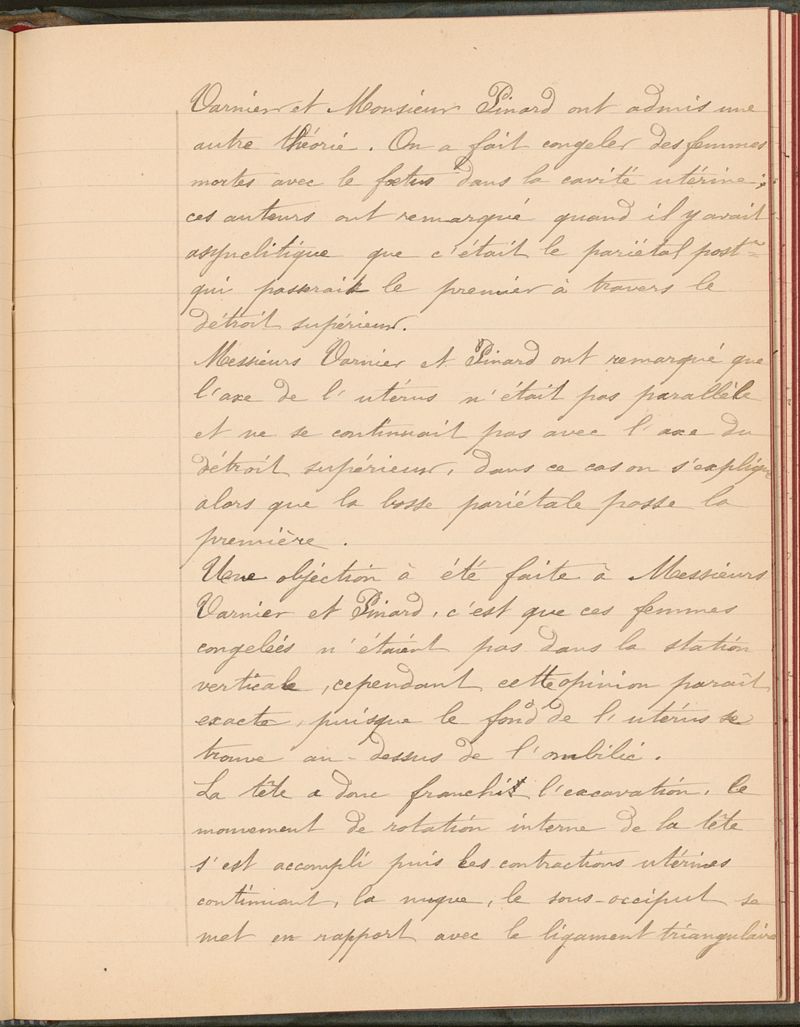 Varnier et Monsieur Pinard ont admis une
autre théorie. On a fait congeler des femmes
mortes avec le fœtus dans la cavité utérine;
ces auteurs ont remarqué quand il y avait
asynclitique que c'était le pariétal postr
qui passerait le premier à travers le
détroit supérieur.
Messieurs Varnier et Pinard ont remarqué que
l'axe de l'utérus n'était pas parallèle
et ne se continuait pas avec l'axe du
détroit supérieur, dans ce cas on s'explique
alors que la bosse pariétale passe la
première.
Une objéction à été faite à Messieurs
Varnier et Pinard, c'est que ces femmes
congelées n'étaient pas dans la station
verticale, cependant cette opinion paraît
exacte, puisque le fond de l'utérus se
trouve au-dessus de l'ombilic.
La tête a donc franchit l'excavation, le
mouvement de rotation interne de la tête
s'est accompli puis les contractions utérines
continuant, la nuque, le sous-occiput se
met en rapport avec le ligament triangulaire